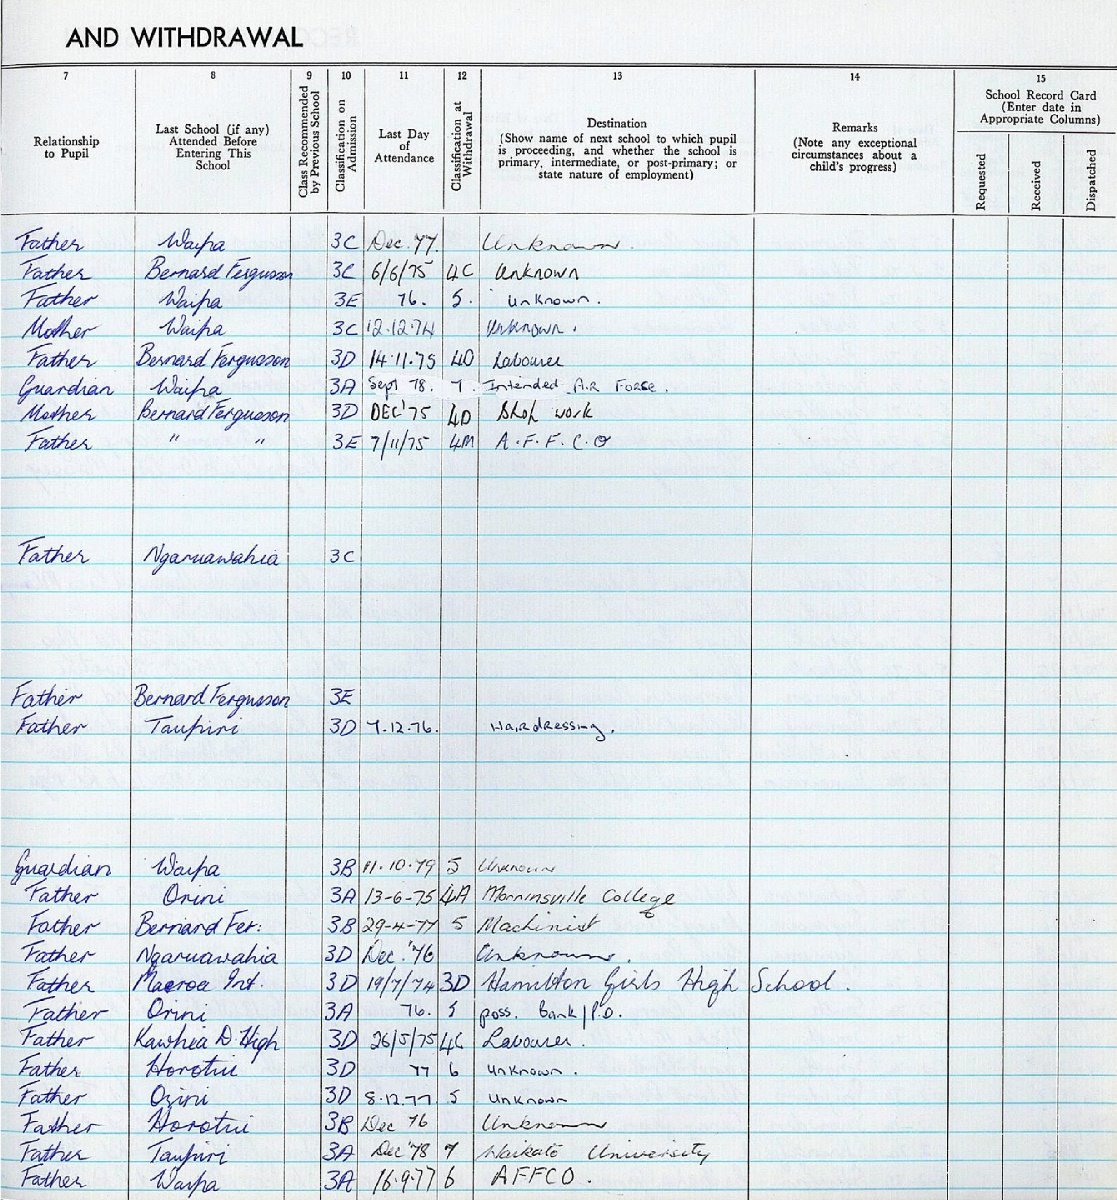 AND WITHDRAWAL
7 8 9 10 11 12 13 14 15
Relationship to Pupil
Last School (if any) Attended Before Entering This School
Class Recommended by Previous School
Classification on Admission
Last Day of Attendance
Classification at Withdrawal
Destination
(Show name of next school to which pupil is proceeding, and whether the school is primary, intermediate, or post-primary; or state nature of employment)
Remarks
(Note any exceptional circumstances about a child's progress)
School Record Card
(Enter date in Appropriate Columns)
Requested
Received
Dispatched
Father Waipa 3C Dec. 77. Unknown.
Father Bernard Fergusson 3C 6/6/75 4C Unknown
Father Waipa 3E 76. 5. Unknown.
Mother Waipa 3C 12.12.74 Unknown.
Father Bernard Fergusson 3D 14.11.75 4D Labourer
Guardian Waipa 3A Sept 78. 7. Intended Air Force.
Mother Bernard Fergusson 3D DEC'75 4D Shop work
Father " " 3E 7/11/75 4M A.F.F.C.O
Father Ngaruawahia 3C
Father Bernard Fergusson 3E
Father Taupiri 3D 7.12.76. Hairdressing.
Guardian Waipa 3B 11.10.79 5 Unknown
Father Orini 3A 13-6-75 4A Morrinsville College
Father Bernard Fer: 3B 29-4-77 5 Machinist
Father Ngaruawahia 3D Dec. '76 Unknown.
Father Maeroa Int. 3D 19/7/74 3D Hamilton Girls High School.
Father Orini 3A 76. 5 poss. Bank/P.O.
Father Kawhia D. High 3D 26/5/75 4C Labourer.
Father Horotiu 3D 77 6 Unknown.
Father Orini 3D 8.12.77. 5 Unknown
Father Horotiu 3B Dec 76 Unknown
Father Taupiri 3A Dec'78 7 Waikato University
Father Waipa 3A 16.9.77 6 AFFCO.